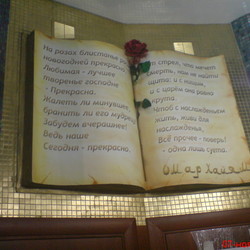 На розах блистанье ро
новогодней прекрасно
Любимая - лучшее
творенье господне
- Прекрасна.
Жалеть ли минувшее
бранить ли его мудрец
Забудем вчерашнее!
Ведь наше
Сегодня - прекрасно.
стрел, что мечет
смерть, нам не найти
щита: и с нищим,
и с царём она равно
крута.
Чтоб с наслажденьем
жить, живи для
наслажденья,
Всё прочее - поверь!
- одна лишь суета.
Омар Хайям